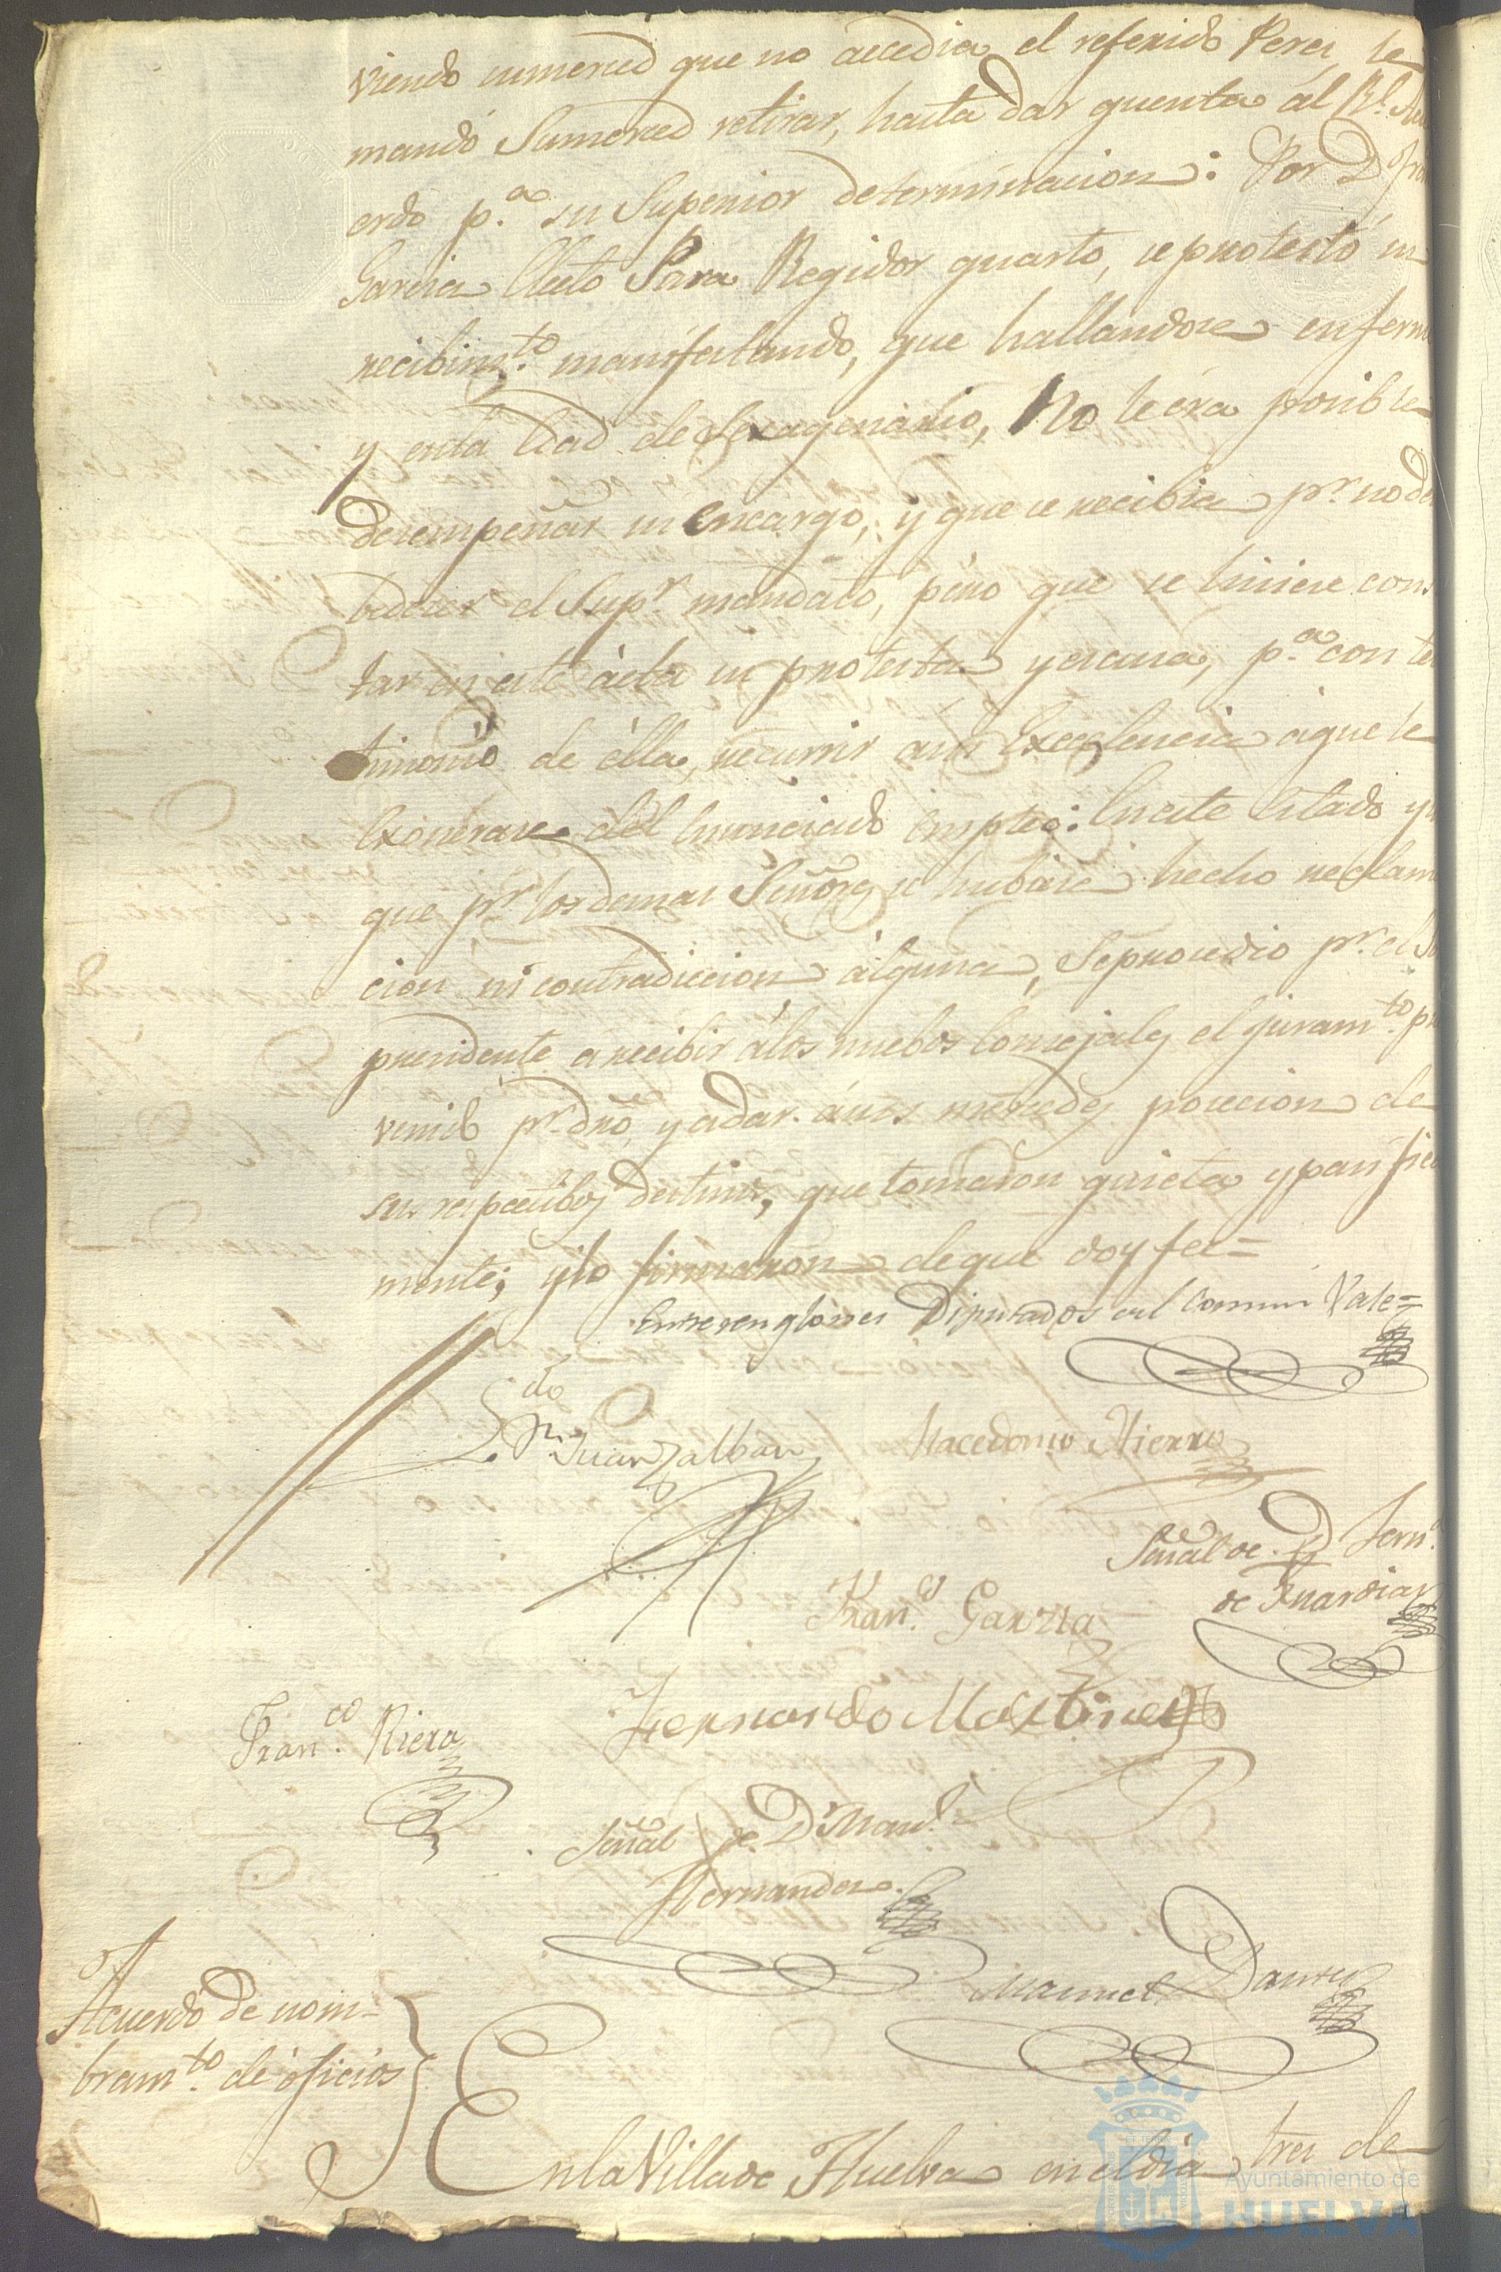 viendo sumerced que no accedia el referido Perez, le
mandó Sumerced retirar, hasta dar quenta ál Rl. Acu
erdo p.a su Superior determinacion: Por D. Fran
Garcia Electo Para Regidor quarto, se protestó su
recibim.to manifestando, que hallandose enfermo
y enla Edad de Sexagenario, No le éra posible
desempeñar su encargo, y que se recibia pr. no deso
bedecer el Supr. mandato, pero que se hiciese cons
tar en este ácta su protesta y escusa, p.a con tes
timonio de élla, recurrir asu Excelencia aque le
Exônerase del Enunciado Empleo: En este Estado y sin
que pr. los demas Señores se hubiese hecho reclama
cion ni contradiccion álguna, Seprocedio pr. el Sor
presidente a recibir álos nuebos Concejales el juram.to pre
venido pr. dro, y adar. ásus mercedes posecion de
sus respectibos destinos, que tomaron quieta y pasifica
mente; y lo firmaron de que doy fee =
Entre renglones Diputados del Comun Vale =
Ldo
Dn. Juan Zalban
Macedonio Hierro
Señal de D Fern.
de Guardiar
Fran.co Garzia
Fran.co Riera
Fernando Martinez
Señal de Dn Man.l
Hernandez.
Manuel
Acuerdo de nom-
bram.to de óficios
En la Villa de Huelva en el dia tres de
Ayuntamiento de
HUELVA